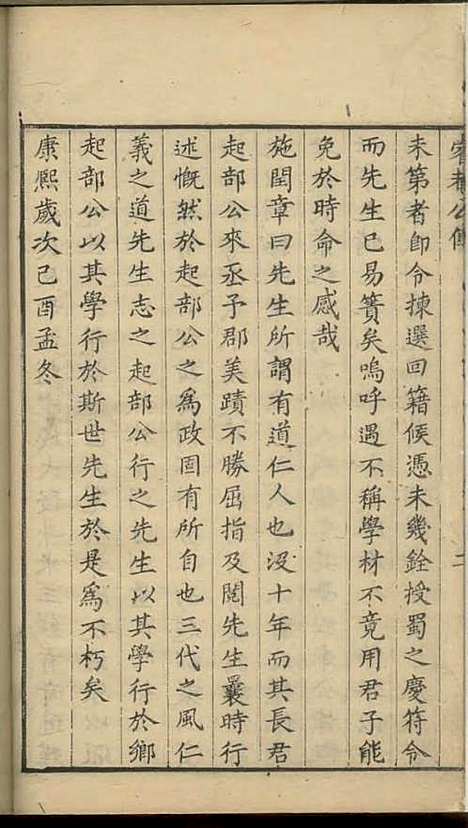 未第者即令揀選回籍候憑未幾銓授蜀之慶符令
而先生已易簀矣嗚呼遇不稱學材不竟用君子能
免於時命之感哉
施閏章曰先生所謂有道仁人也沒十年而其長君
起部公來丞予郡美蹟不勝屈指及閱先生曩時行
述慨然於起部公之為政固有所自也三代之風仁
義之道先生志之起部公行之先生以其學行於鄉
起部公以其學行於斯世先生於是為不朽矣
康熙歲次己酉孟冬